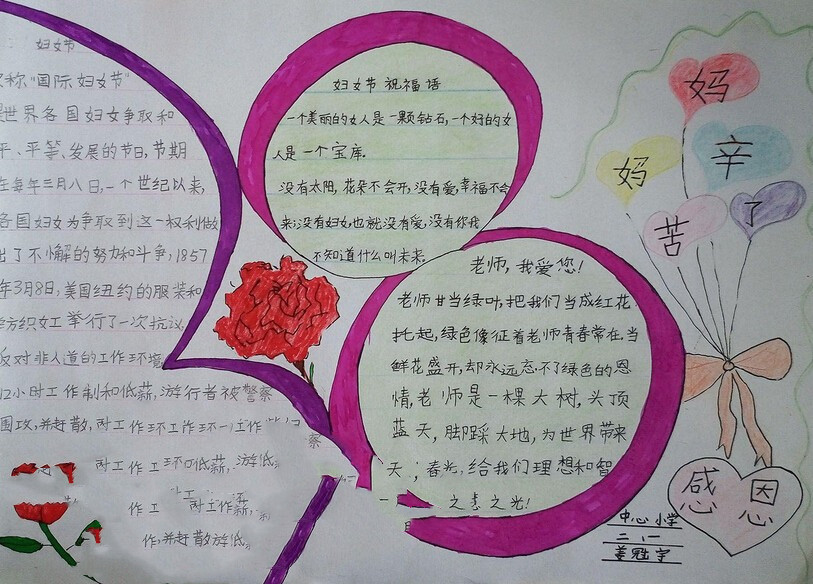 妇女节
又称“国际妇女节”
是世界各国妇女争取和
平、平等、发展的节日,节期
在每年三月八日,一个世纪以来,
各国妇女为争取到这一权利做
出了不懈的努力和斗争,1857
年3月8日,美国纽约的服装和
纺织女工举行了一次抗议
反对非人道的工作环境
12小时工作制和低薪,游行者被警察
围攻,并赶散,
作,并赶散游低
妇女节祝福语
一个美丽的女人是一颗钻石,一个好的女
人是一个宝库.
没有太阳,花朵不会开,没有爱,幸福不会
来;没有妇女,也就没有爱,没有你我
不知道什么叫未来.
老师,我爱您!
老师甘当绿叶,把我们当成红花
托起,绿色像征着老师青春常在.当
鲜花盛开,却永远忘不了绿色的恩
情,老师是一棵大树,头顶
蓝天,脚踩大地,为世界带来
天;春光,给我们理想和智
之光!
妈
妈
辛
苦
了
感恩
中心小学
二、一
姜胜宇